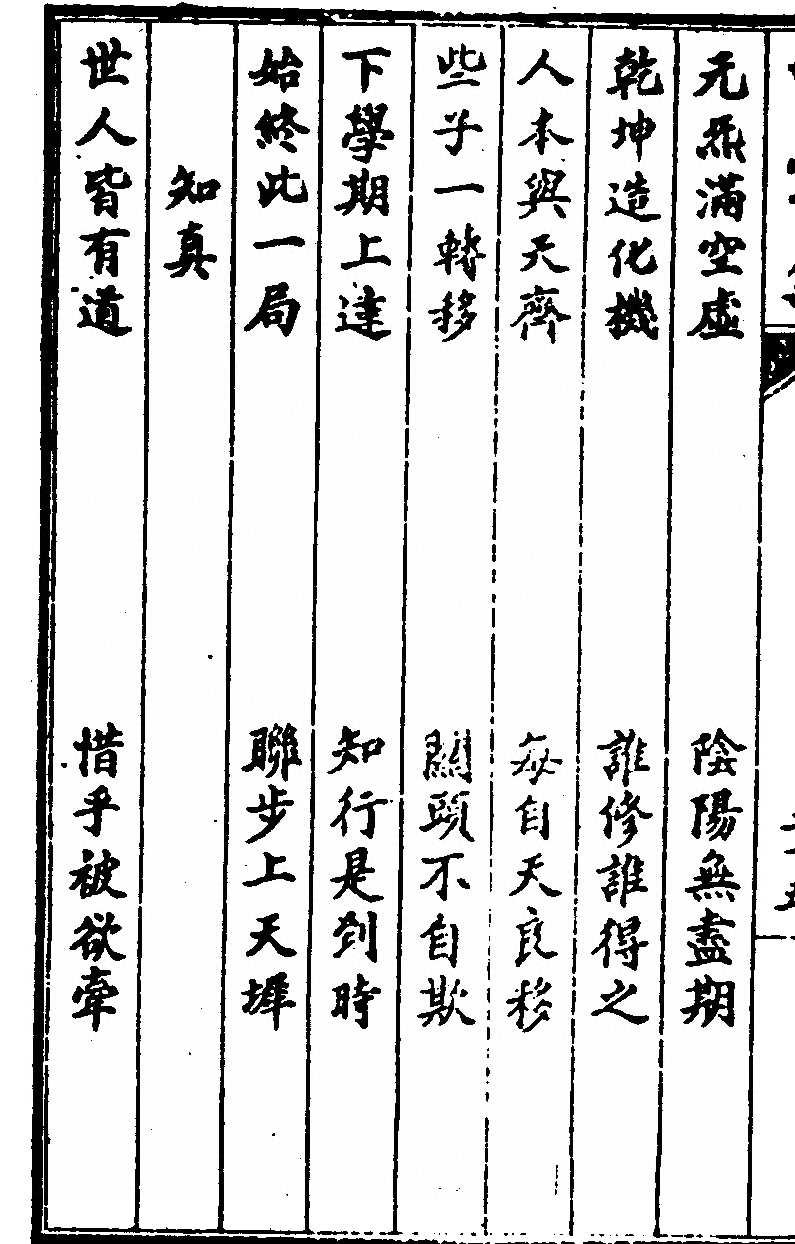 元炁滿空虛　陰陽無盡期
乾坤造化機　誰修誰得之
人本與天齊　每自天良移
些子一轉移　關頭不自欺
下學期上達　知行是到時
始終此一局　聯步上天墀
知真
世人皆有道　惜乎被欲牽